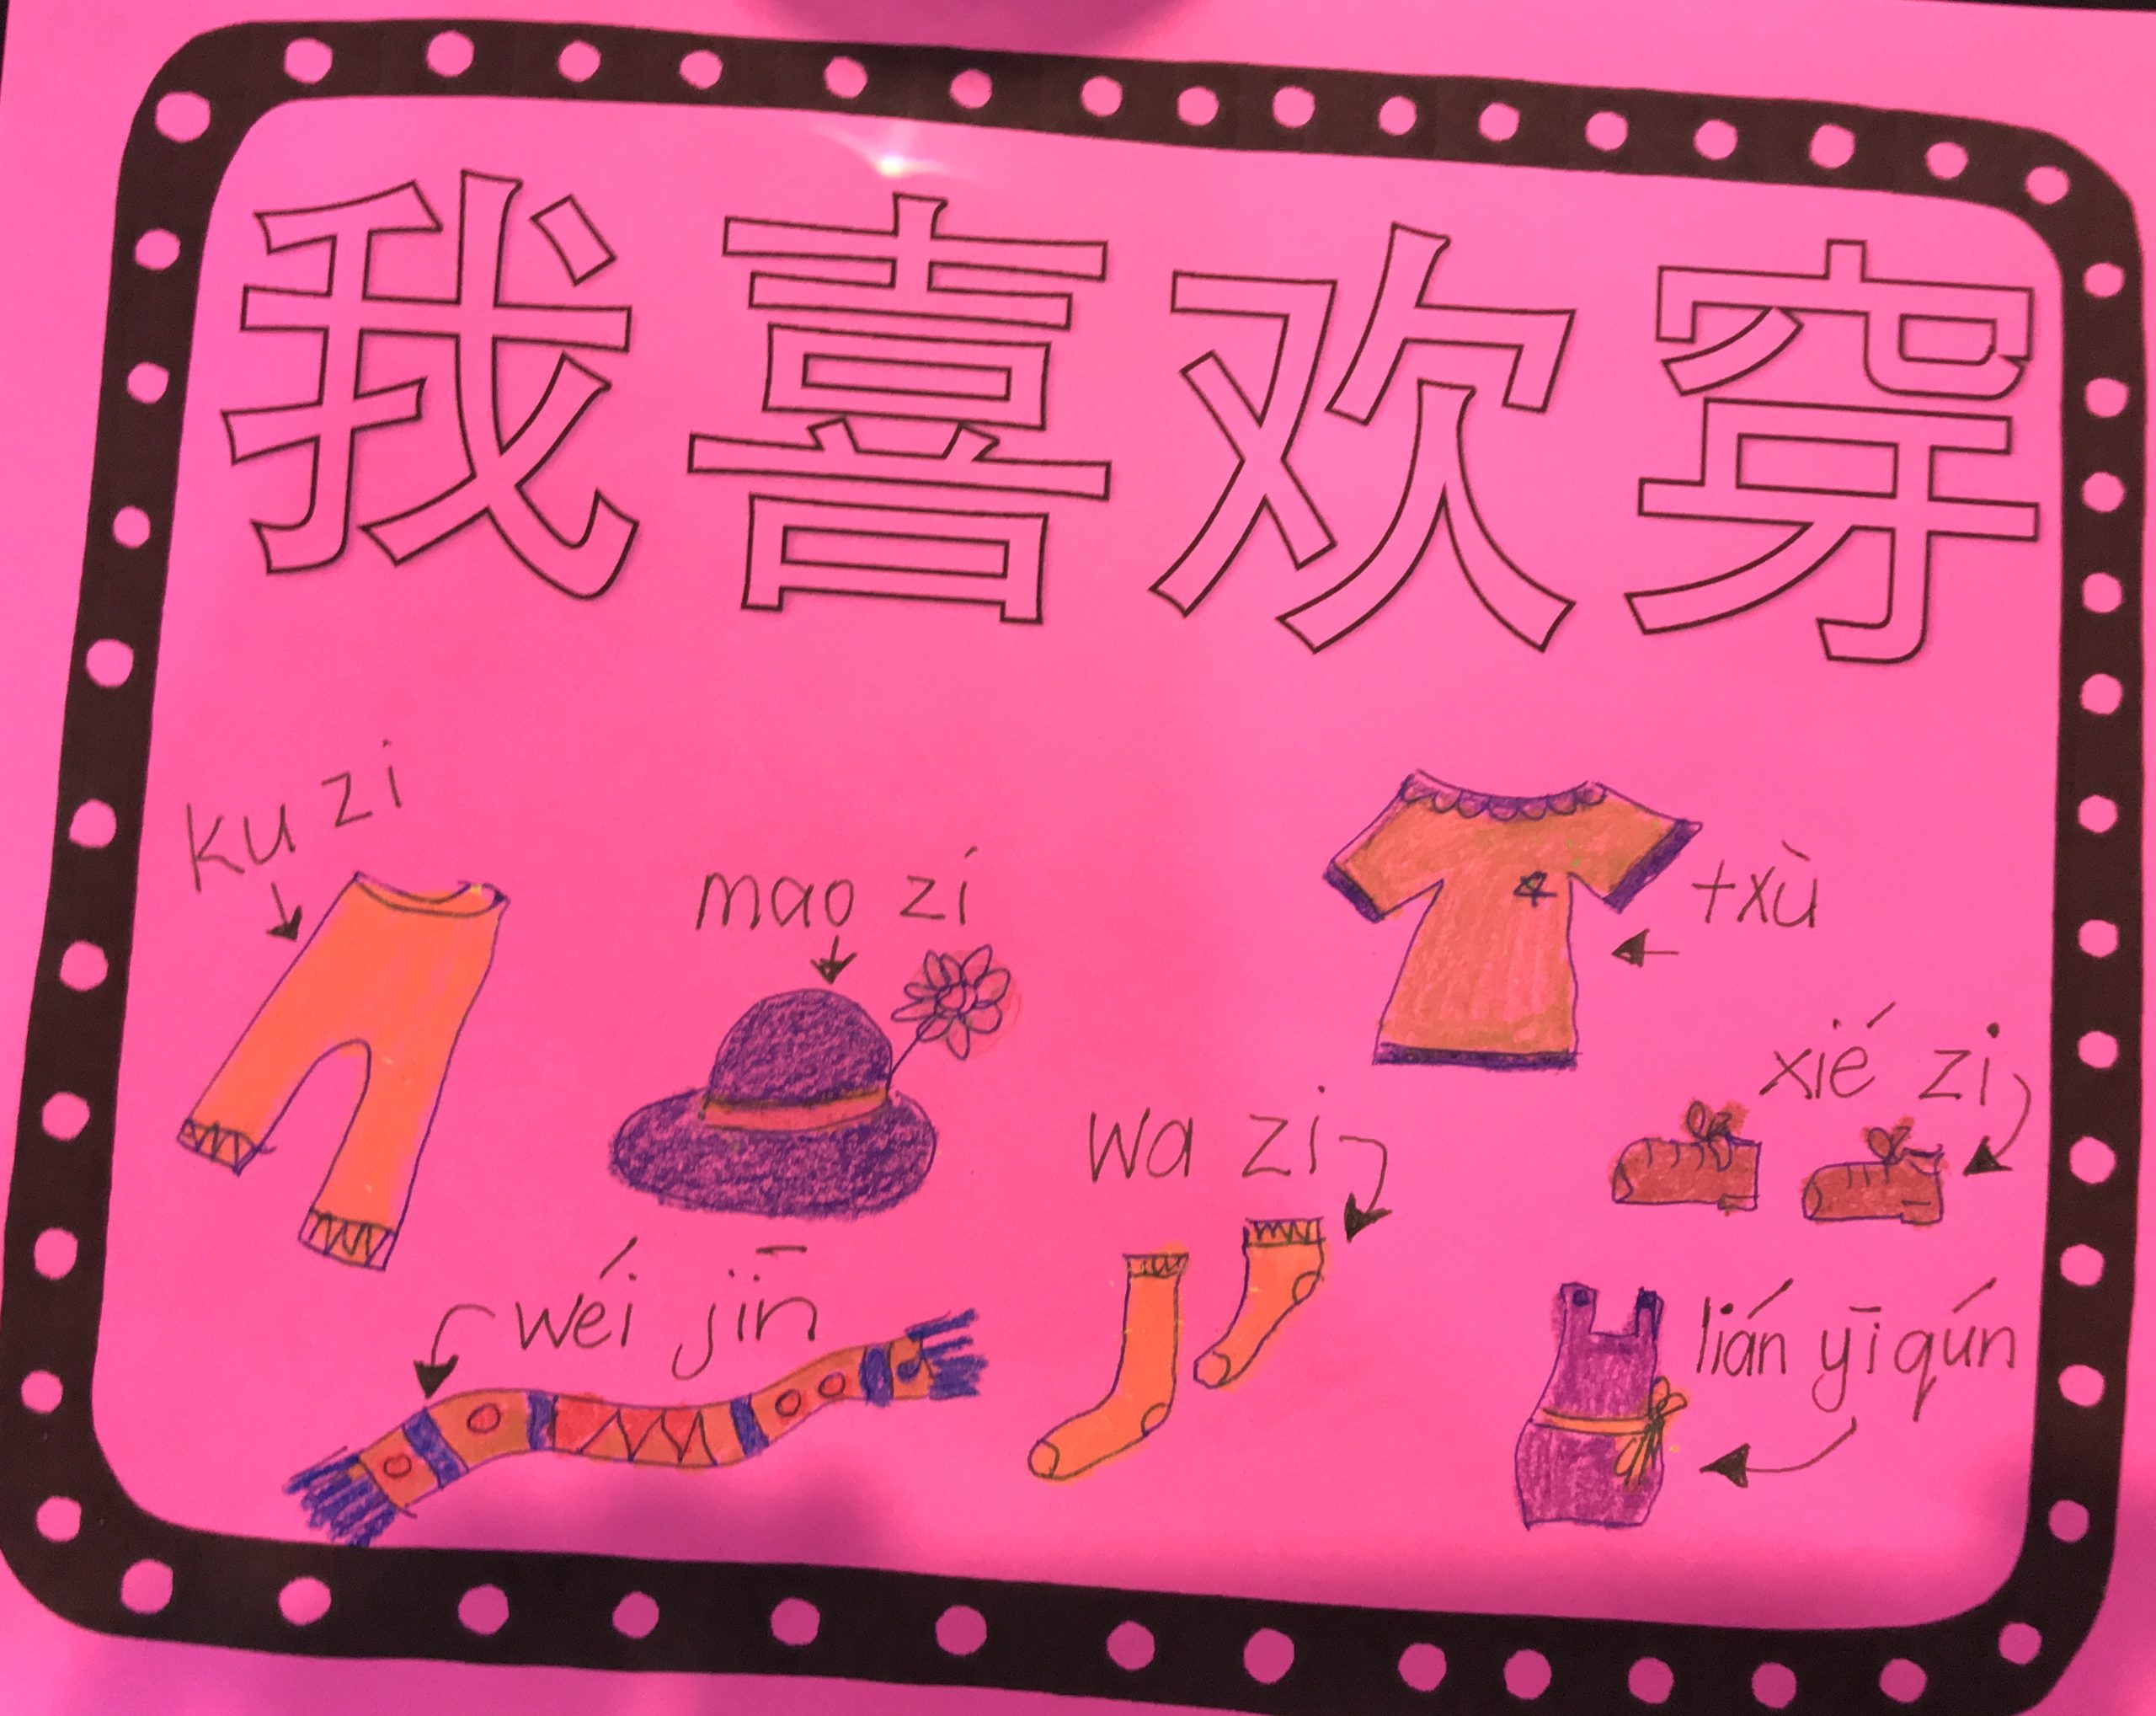 我喜欢穿
ku zi
mao zi
txù
xié zi
wa zi
wéi jīn
lián yī qún